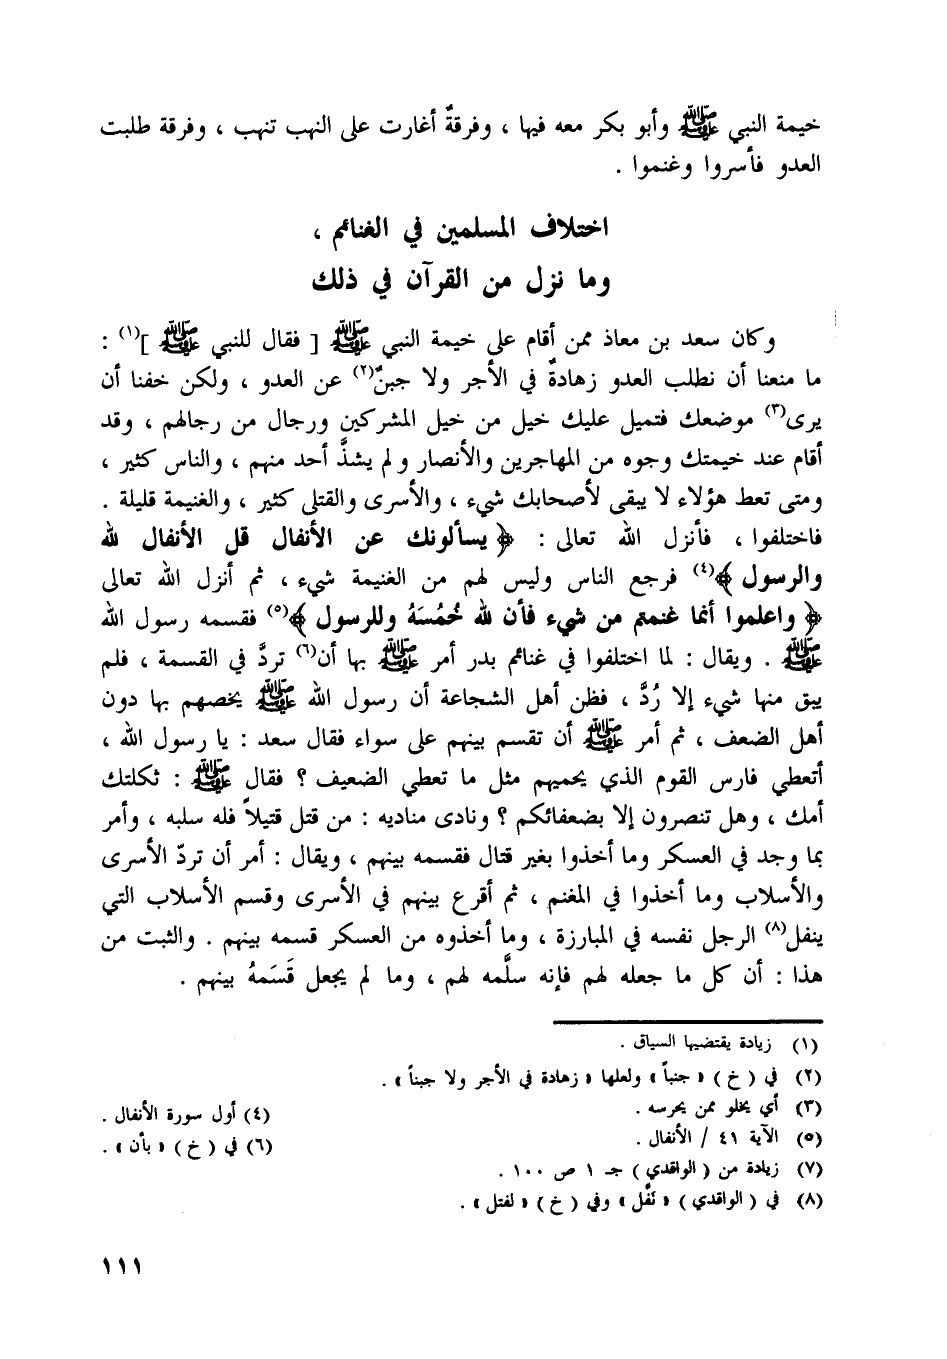 خيمة النبي ﷺ وأبو بكر معه فيها ، وفرقةٌ أغارت على النهب تنهب ، وفرقة طلبت
العدو فأسروا وغنموا .
اختلاف المسلمين في الغنائم ،
وما نزل من القرآن في ذلك
وكان سعد بن معاذ ممن أقام على خيمة النبي ﷺ [ فقال للنبي ﷺ ](١) :
ما منعنا أن نطلب العدو زهادةٌ في الأجر ولا جبنٌ(٢) عن العدو ، ولكن خفنا أن
يرى(٣) موضعك فتميل عليك خيل من خيل المشركين ورجال من رجالهم ، وقد
أقام عند خيمتك وجوه من المهاجرين والأنصار ولم يشذَّ أحد منهم ، والناس كثير ،
ومتى تعط هؤلاء لا يبقى لأصحابك شيء ، والأسرى والقتلى كثير ، والغنيمة قليلة .
فاختلفوا ، فأنزل الله تعالى : ﴿ يسألونك عن الأنفال قل الأنفال لله
والرسول ﴾(٤) فرجع الناس وليس لهم من الغنيمة شيء ، ثم أنزل الله تعالى
﴿ واعلموا أنما غنمتم من شيء فأن لله خُمُسَهُ وللرسول ﴾(٥) فقسمه رسول الله
ﷺ . ويقال : لما اختلفوا في غنائم بدر أمر ﷺ بها أن(٦) تردَّ في القسمة ، فلم
يبق منها شيء إلا رُدَّ ، فظن أهل الشجاعة أن رسول الله ﷺ يخصهم بها دون
أهل الضعف ، ثم أمر ﷺ أن تقسم بينهم على سواء فقال سعد : يا رسول الله ،
أتعطي فارس القوم الذي يحميهم مثل ما تعطي الضعيف ؟ فقال ﷺ : ثكلتك
أمك ، وهل تنصرون إلا بضعفائكم ؟ ونادى مناديه : من قتل قتيلاً فله سلبه ، وأمر
بما وجد في العسكر وما أخذوا بغير قتال فقسمه بينهم ، ويقال : أمر أن تردّ الأسرى
والأسلاب وما أخذوا في المغنم ، ثم أقرع بينهم في الأسرى وقسم الأسلاب التي
ينفل(٨) الرجل نفسه في المبارزة ، وما أخذوه من العسكر قسمه بينهم . والثبت من
هذا : أن كل ما جعله لهم فإنه سلَّمه لهم ، وما لم يجعل قَسَمَهُ بينهم .
(١) زيادة يقتضيها السياق .
(٢) في ( خ ) « جنباً » ولعلها « زهادة في الأجر ولا جبناً » .
(٣) أي يخلو ممن يحرسه .
(٤) أول سورة الأنفال .
(٥) الآية ٤١ / الأنفال .
(٦) في ( خ ) « بأن » .
(٧) زيادة من ( الواقدي ) جـ ١ ص ١٠٠ .
(٨) في ( الواقدي ) « نَفَّل » وفي ( خ ) « لفتل » .
١١١